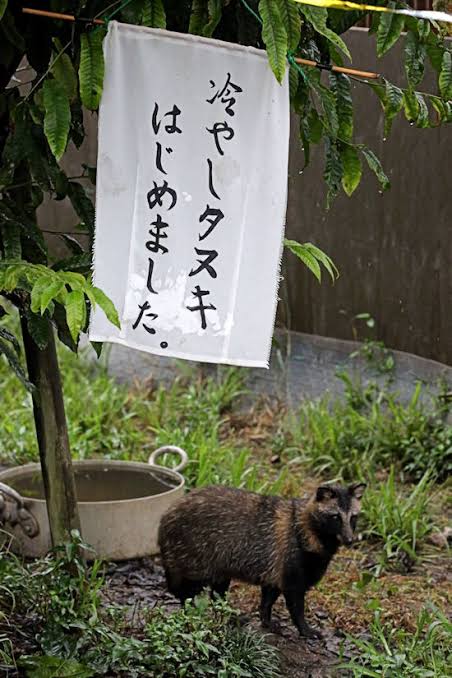 冷やしタヌキ
はじめました。